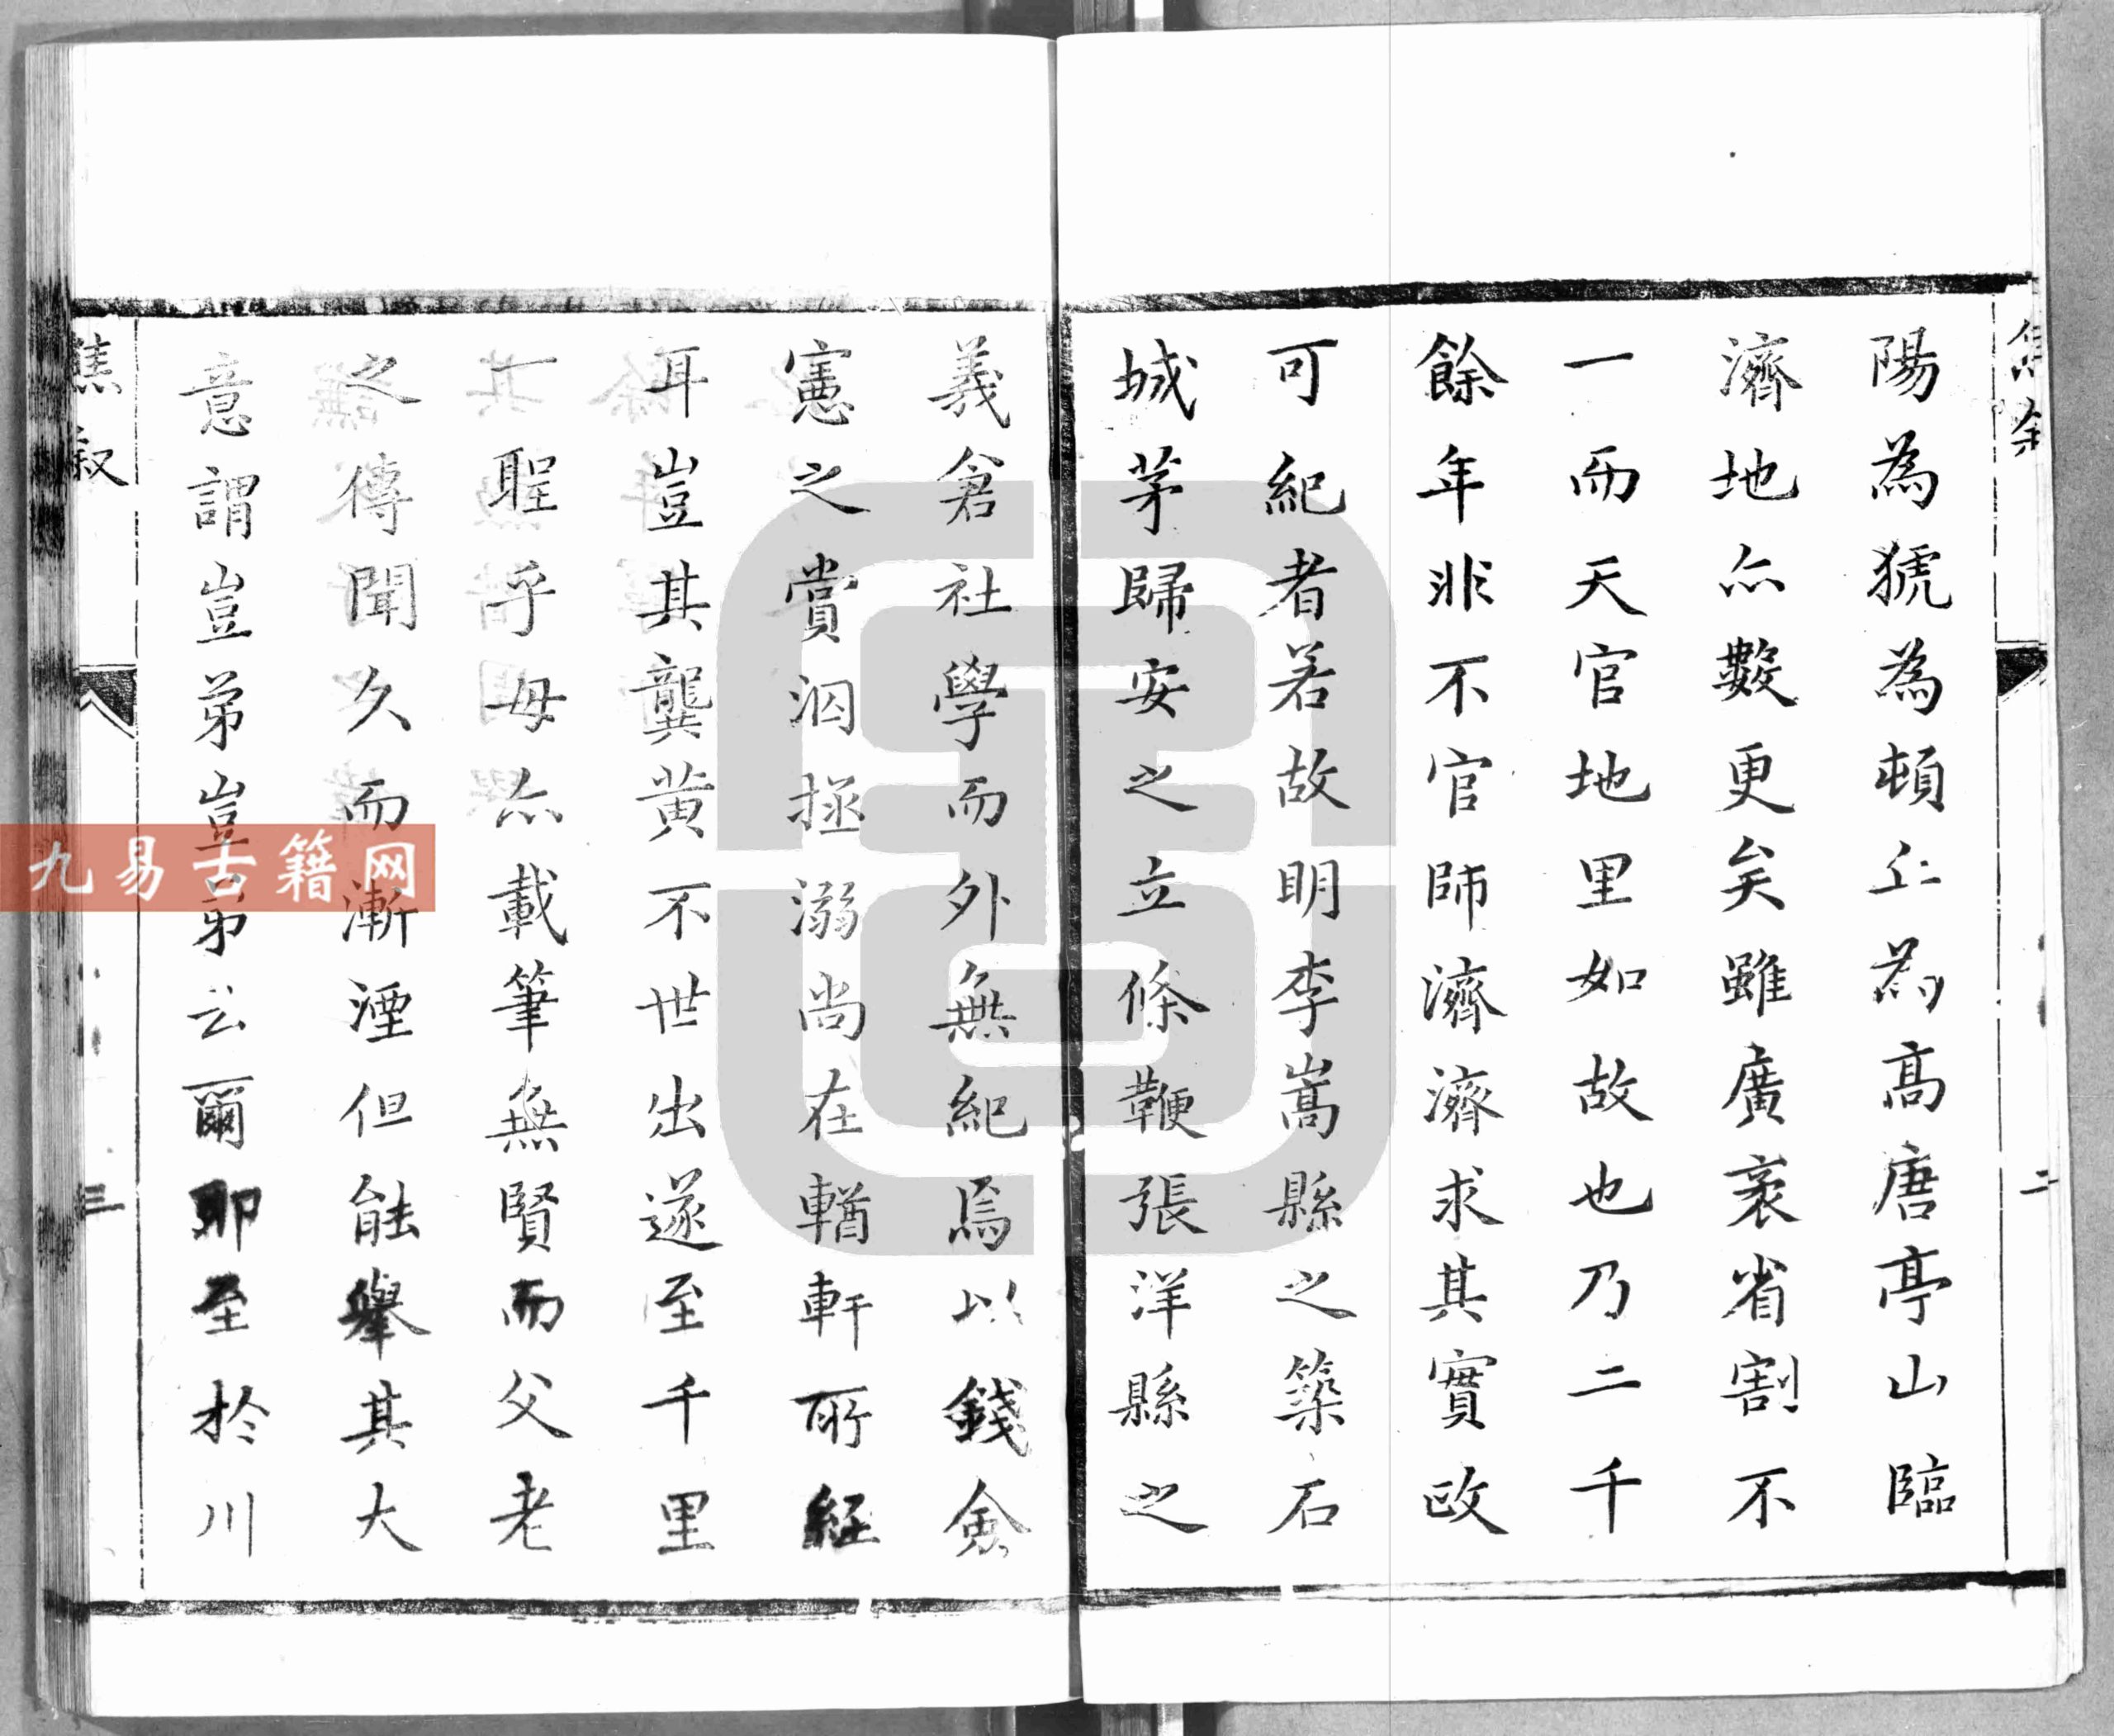 陽為猇為頓丘為高唐亭山臨
濟地亦數更矣雖廣袤省割不
一而天官地里如故也乃二千
餘年非不官師濟濟求其實政
可紀者若故明李嵩縣之築石
城茅歸安之立條鞭張洋縣之
義倉社學而外無紀焉以錢僉
憲之賞洇拯溺尚在輶軒所經
耳豈其龔黃不世出遂至千里
一聖乎毋亦載筆無賢而父老
之傳聞久而漸湮但能舉其大
意謂豈弟豈弟云爾耶至於川
焦叙
三
二
九易古籍网